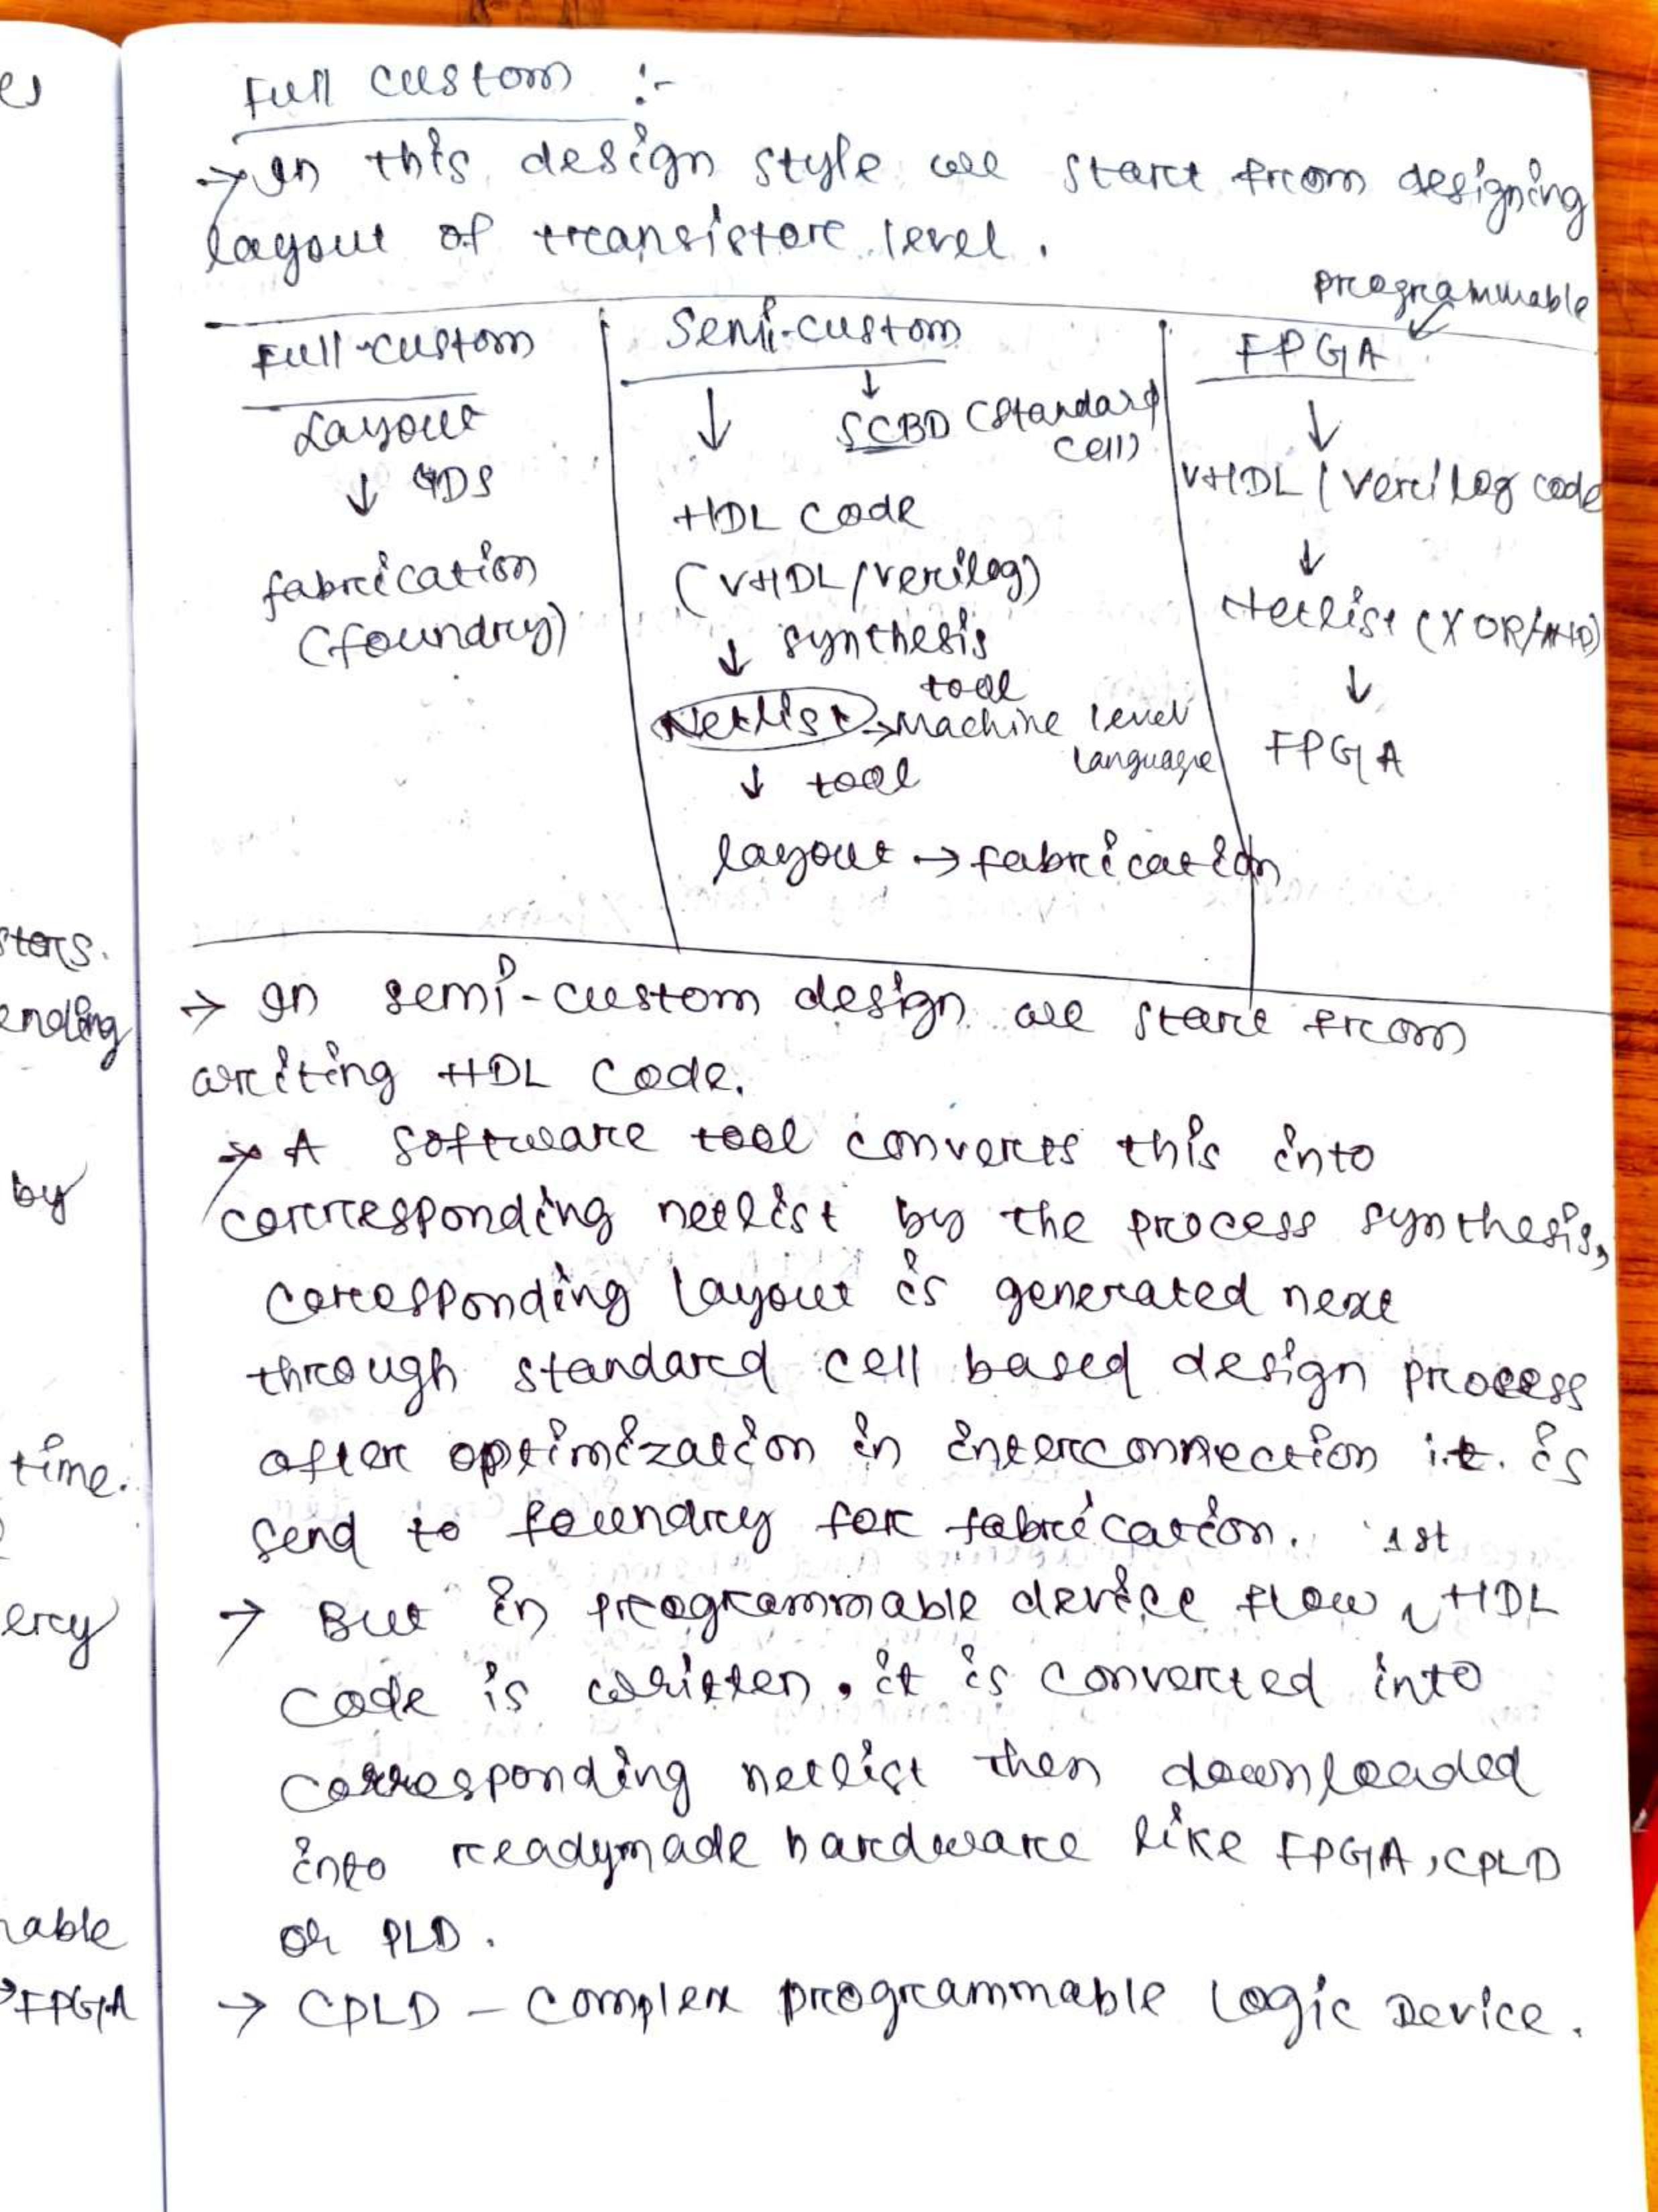 Full custom :-
→ In this design style we start from designing
layout of transistor level.
programmable
Full-custom
Layout
↓ GDS
fabrication
(foundry)
Semi-custom
↓ ↓
SCBD (Standard
cell)
HDL code
(VHDL/verilog)
↓ synthesis
tool
Netlist → Machine level
language
↓ tool
layout → fabrication
FPGA
↓
VHDL / Verilog code
↓
Netlist (XOR/AND)
↓
FPGA
→ In semi-custom design we start from
writing HDL code.
→ A software tool converts this into
corresponding netlist by the process synthesis,
corresponding layout is generated next
through standard cell based design process
after optimization in interconnection it. is
send to foundry for fabrication.
1st
→ But in programmable device flow HDL
code is written. it is converted into
corresponding netlist then downloaded
into readymade hardware like FPGA, CPLD
or PLD.
→ CPLD - Complex programmable Logic Device.
es
stors.
ending
by
time.
ery
nable
→FPGA